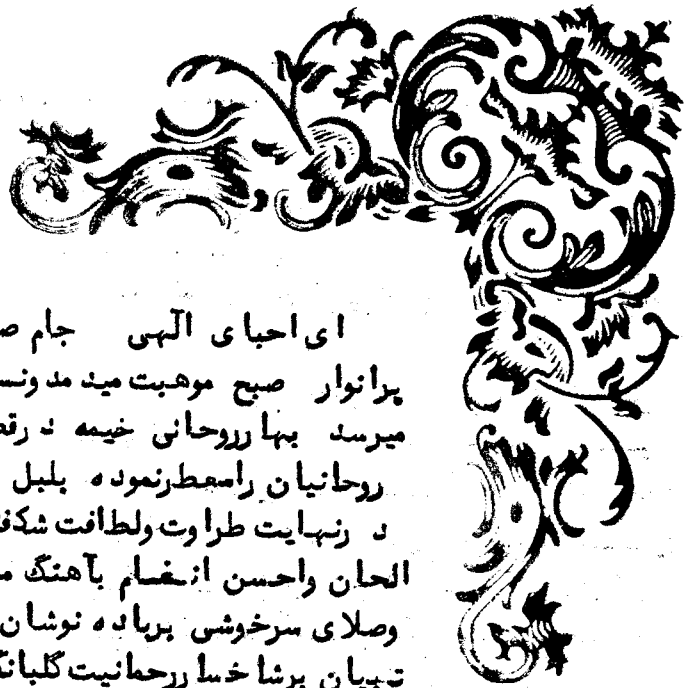 ای احبای الهی جام
پرانوار صبح موهبت میدمد ونس
میرسد بهار روحانی خیمه در
روحانیان رامعطرنموده بلبل
در نهایت طراوت ولطافت شکف
الحان واحسن انغام بآهنگ
وصلای سرخوشی برباده نوشان
برشاخسار رحمانیت گلبانگ